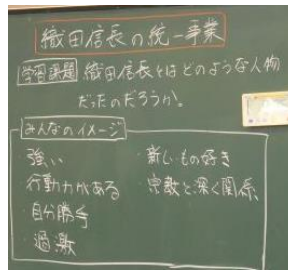 織田信長の統一事業
学習課題 織田信長とはどのような人物
だったのだろうか。
みんなのイメージ
強い
行動力がある
・自分勝手
・過激
・新しもの好き
・宗教と深く関係